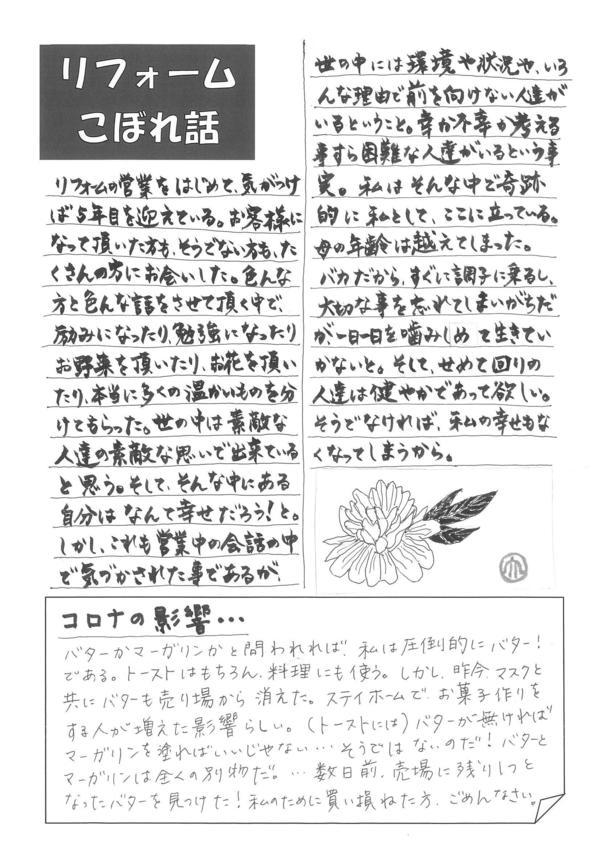 リフォーム
こぼれ話
リフォームの営業をはじめて、気がつけ
ば5年目を迎えている。お客様に
なって頂いた方も、そうでない方も、た
くさんの方にお会いした。色んな
方と色んな話をさせて頂く中で、
励みになったり、勉強になったり
お野菜を頂いたり、お花を頂い
たり、本当に多くの温かいものを分
けてもらった。世の中は素敵な
人達の素敵な思いで出来ている
と思う。そして、そんな中にある
自分はなんて幸せだろう!と。
しかし、これも営業中の会話の中
で気づかされた事であるが、
世の中には環境や状況や、いろ
んな理由で前を向けない人達が
いるということ。幸か不幸か考える
事すら困難な人達がいるという事
実。私はそんな中で奇跡
的に私として、ここに立っている。
母の年齢は越えてしまった。
バカだから、すぐに調子に乗るし、
大切な事を忘れてしまいがちだ
が一日一日を噛みしめて生きてい
かないと。そして、せめて回りの
人達は健やかであって欲しい。
そうでなければ、私の幸せもな
くなってしまうから。
コロナの影響…
バターかマーガリンかと問われれば、私は圧倒的にバター!
である。トーストはもちろん、料理にも使う。しかし、昨今、マスクと
共にバターも売り場から消えた。ステイホームで、お菓子作りを
する人が増えた影響らしい。(トーストには)バターが無ければ
マーガリンを塗ればいいじゃない…そうではないのだ!バターと
マーガリンは全くの別物だ。…数日前、売場に残り1つと
なったバターを見つけた!私のために買い損ねた方、ごめんなさい。